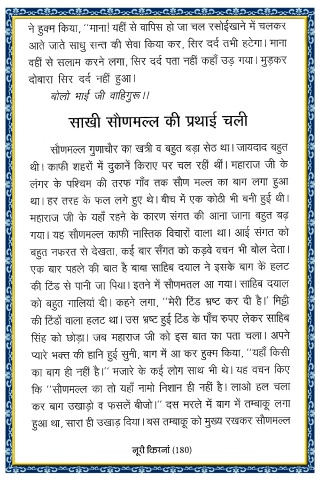 ने हुक्म किया, “माना! यहीं से वापिस हो जा चल रसोईखाने में चलकर
आते जाते साधु सन्त की सेवा किया कर, सिर दर्द तभी हटेगा। माना
वहीं से सलाम करने लगा, सिर दर्द पता नहीं कहाँ उड़ गया। मुड़कर
दोबारा सिर दर्द नहीं हुआ।
बोलो भाई जी वाहिगुरू।।
साखी सौणमल्ल की प्रथाई चली
सौणमल्ल गुणाचौर का खत्री व बहुत बड़ा सेठ था। जायदाद बहुत
थी। काफी शहरों में दुकानें किराए पर चल रहीं थीं। महाराज जी के
लंगर के पश्चिम की तरफ गाँव तक सौण मल्ल का बाग लगा हुआ
था। हर तरह के फल लगे हुए थे। बीच में एक कोठी भी बनी हुई थी।
महाराज जी के यहाँ रहने के कारण संगत की आना जाना बहुत बढ़
गया। यह सौणमल्ल काफी नास्तिक विचारों वाला था। आई संगत को
बहुत नफरत से देखता, कई बार सँगत को कड़वे वचन भी बोल देता।
एक बार पहले की बात है बाबा साहिब दयाल ने इसके बाग के हलट
की टिंड से पानी जा पिया। इतने में सौणमतल आ गया। साहिब दयाल
को बहुत गालियां दी। कहने लगा, “मेरी टिंड भ्रष्ट कर दी है।” मिट्टी
की टिंडों वाला हलट था। उस भ्रष्ट हुई टिंड के पाँच रुपए लेकर साहिब
सिंह को छोड़ा। जब महाराज जी को इस बात का पता चला। अपने
प्यारे भक्त की हानि हुई सुनी, बाग में आ कर हुक्म किया, “यहाँ किसी
का बाग ही नहीं है।” मजारे के कई लोग साथ भी थे। यह वचन किए
कि “सौणमल्ल का तो यहाँ नामो निशान ही नहीं है। लाओ हल चला
कर बाग उखाड़ो व फसलें बीजो।” दस मरले में बाग में तम्बाकू लगा
हुआ था, सारा ही उखाड़ दिया। बस तम्बाकू को मुख्य रखकर सौणमल्ल
नूरी किरनां (180)